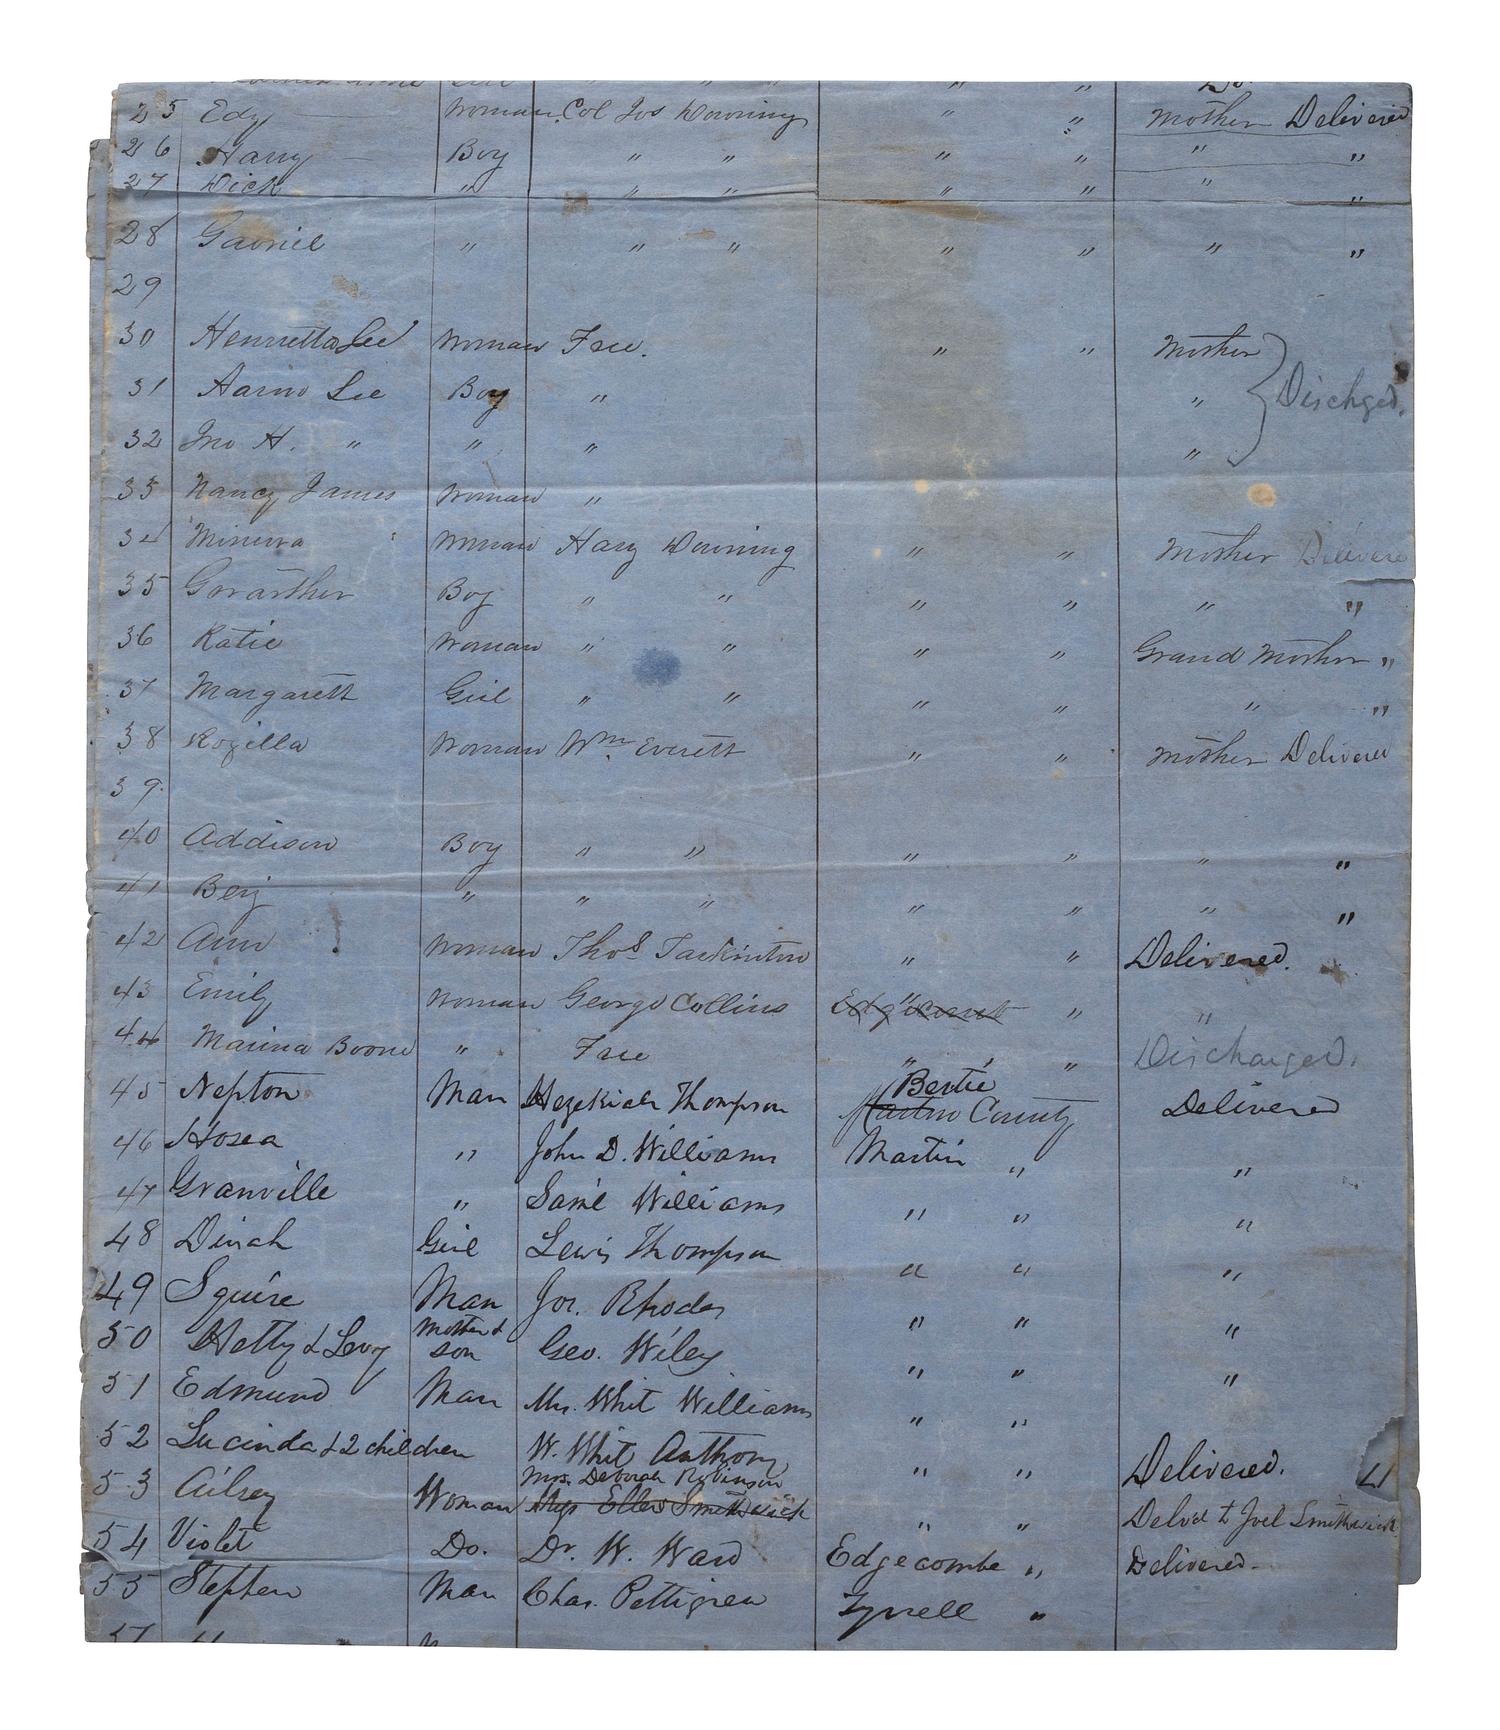 Do
25 Edy Woman Col Jos Downing " " Mother Delivered
26 Harry Boy " " " " " "
27 Dick " " " " " " "
28 " " " " " " "
29
30 Henrietta Lee Woman Free. " " Mother
31 Aaron Lee Boy " " Dischged.
32 Jno H. " " " "
33 Nancy James Woman "
34 Minerva Woman Harry Downing " " Mother Delivere
35 Boy " " " " " "
36 Katie Woman " " " " Grand Mother "
37 Margarett Girl " " " " " "
38 Rozilla Woman Wm. Everett " " Mother Delivered
39.
40 Addison Boy " " " " " "
41 Benj " " " " " " "
42 Ann Woman Thos. Tarkinton " " Delivered.
43 Emily Woman George Collins " " "
44 Marina Boone " Free " " Discharged.
45 Nepton Man Hezekiah Thompson Bertie Martin County Delivered
46 Hosea " John D. Williams Martin " "
47 Granville " Saml Williams " " "
48 Dinah Girl Lewis Thompson " " "
49 Squire Man Jos. Rhodes " " "
50 Hetty & Levy Mother & son Geo. Wiley " " "
51 Edmund Man Mrs. Whit Williams " "
52 Lucinda & 2 children W. Whit Anthony " " Delivered.
53 Ailsey Woman Mrs. Deborah Robinson Mrs Ellen Smithwick " " Delvd to Joel Smithwick
54 Violet Do. Dr. W. Ward Edgecombe " Delivered
55 Stephen Man Chas. Pettigrew Tyrrell "
57